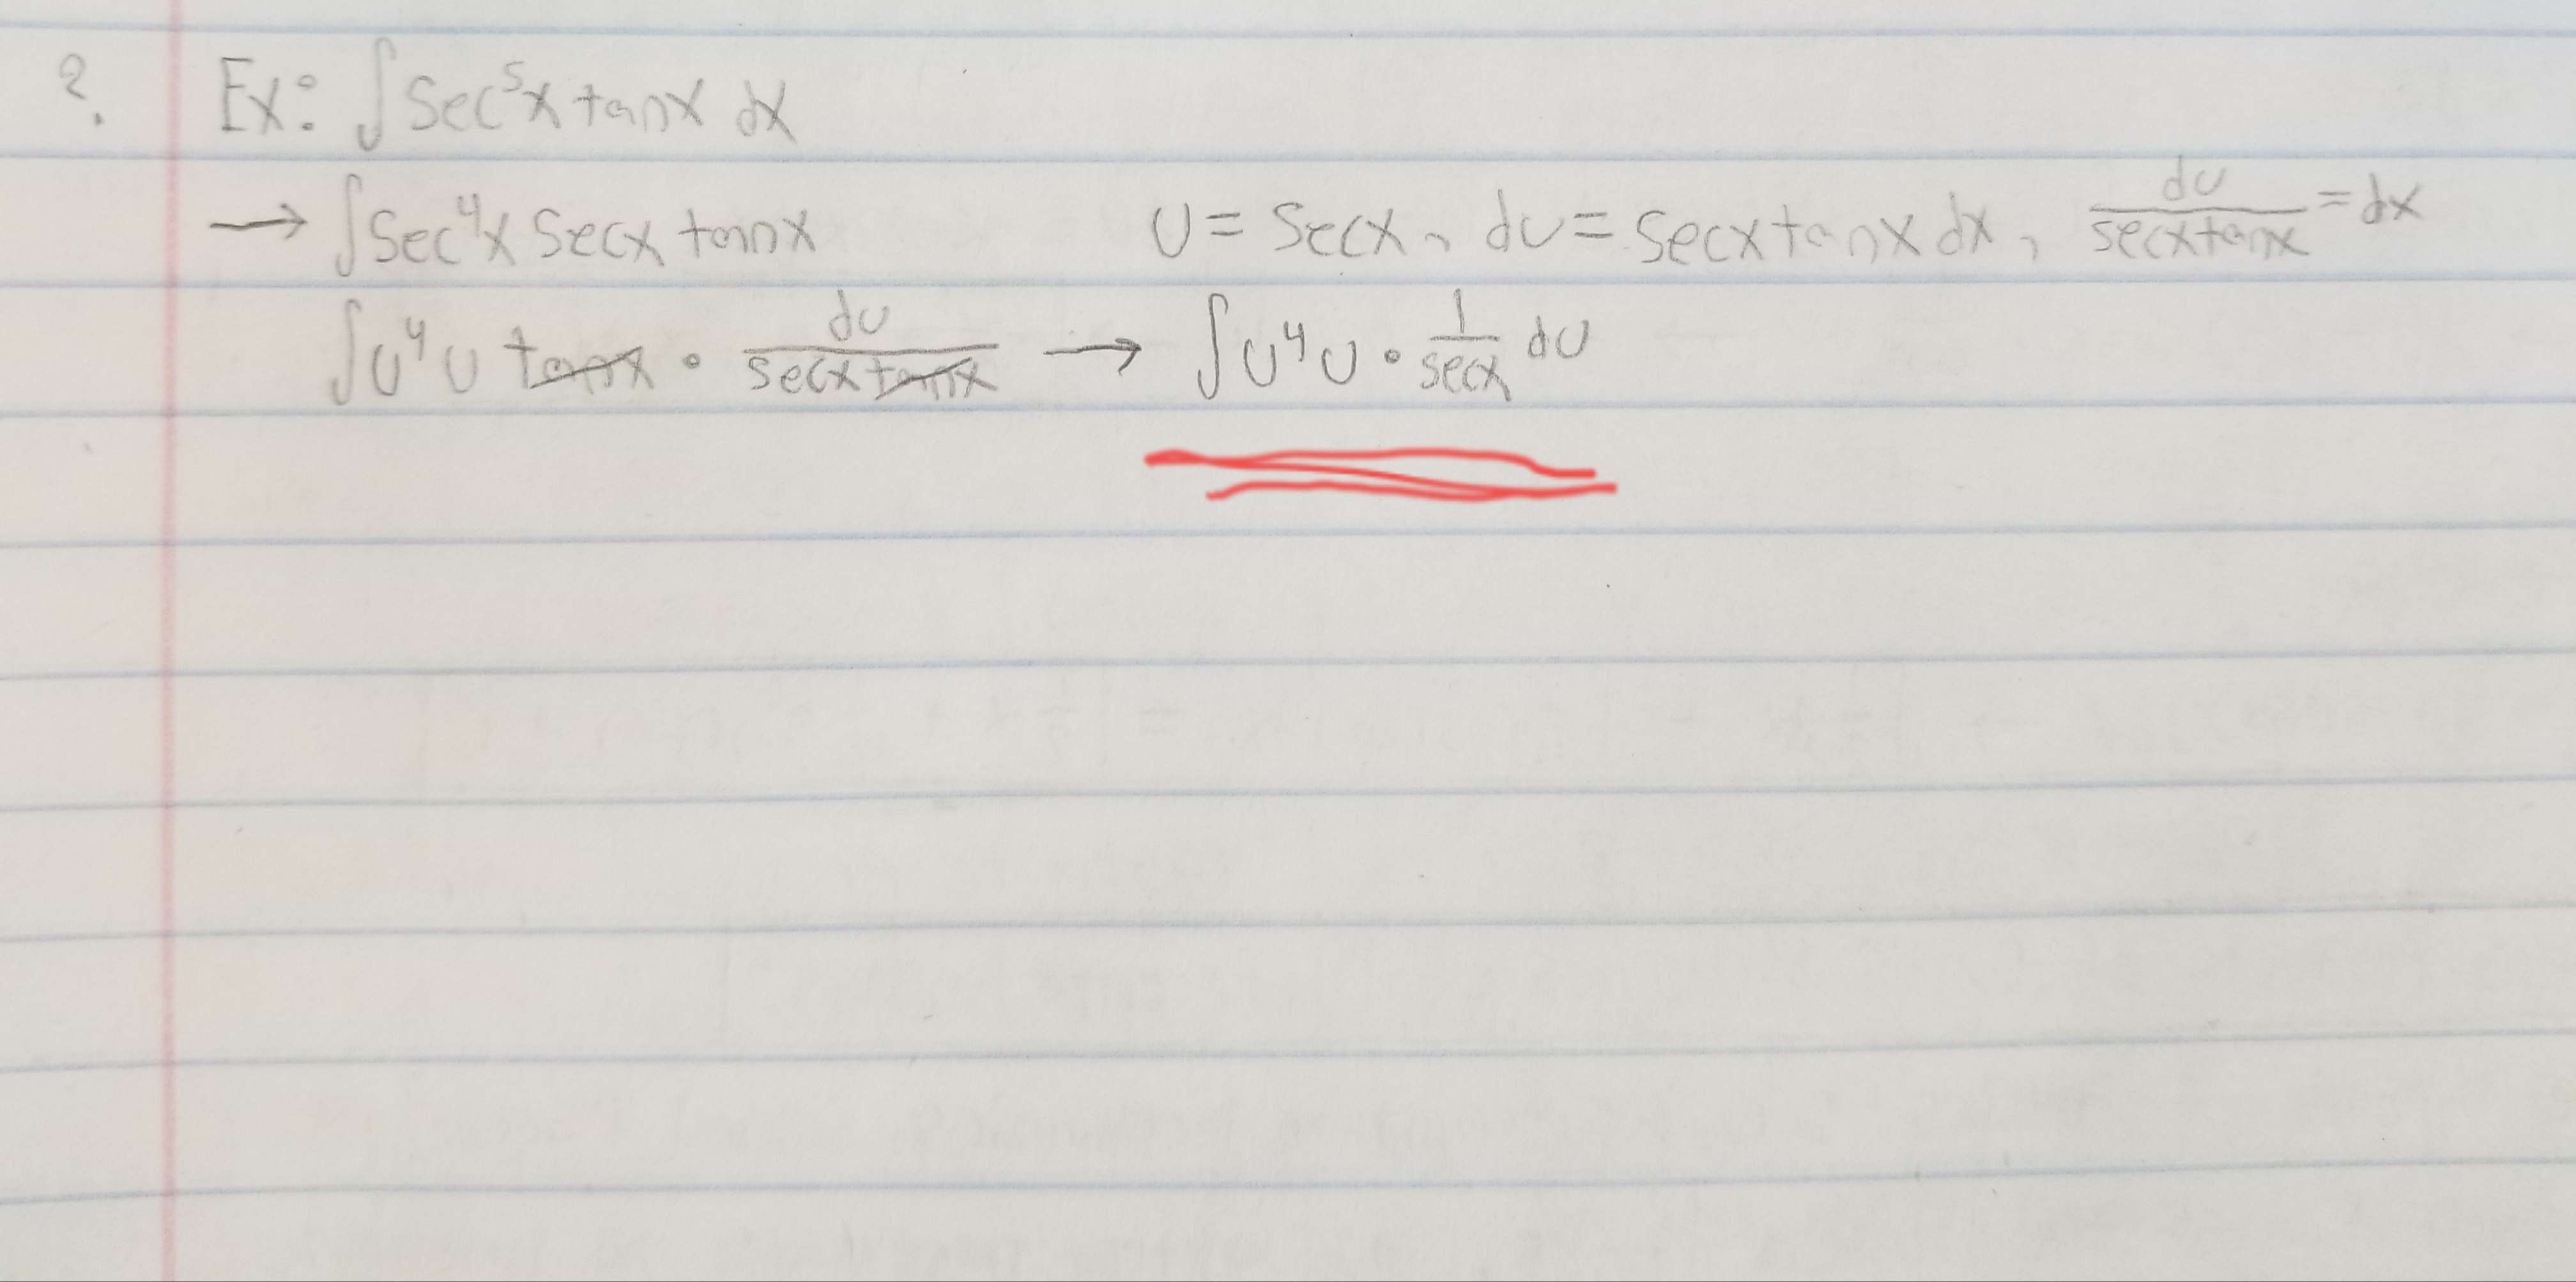 2. Ex: ∫sec⁵x tanx dx
→ ∫sec⁴x secx tanx u = secx, du = secxtanx dx, du/secxtanx = dx
∫u⁴ u tanx · du/secxtanx → ∫u⁴ u · 1/secx du